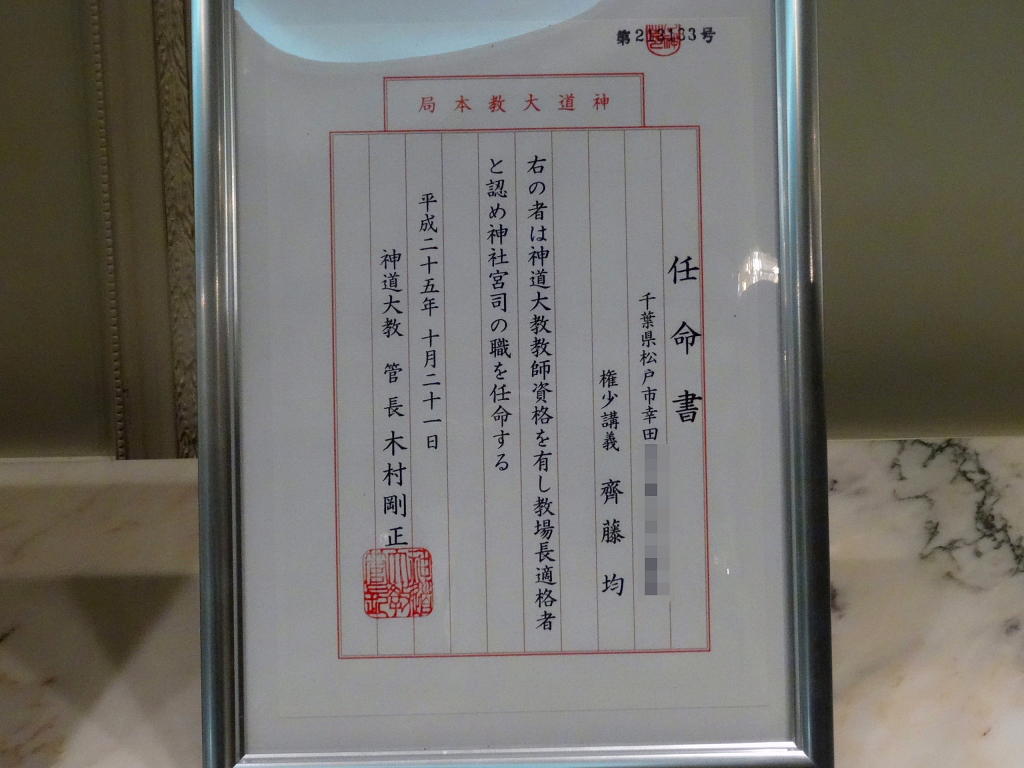 第213163号
神道大教本局
任命書
千葉県松戸市幸田
権少講義 齊藤 均
右の者は神道大教教師資格を有し教場長適格者
と認め神社宮司の職を任命する
平成二十五年 十月二十一日
神道大教 管長 木村剛正